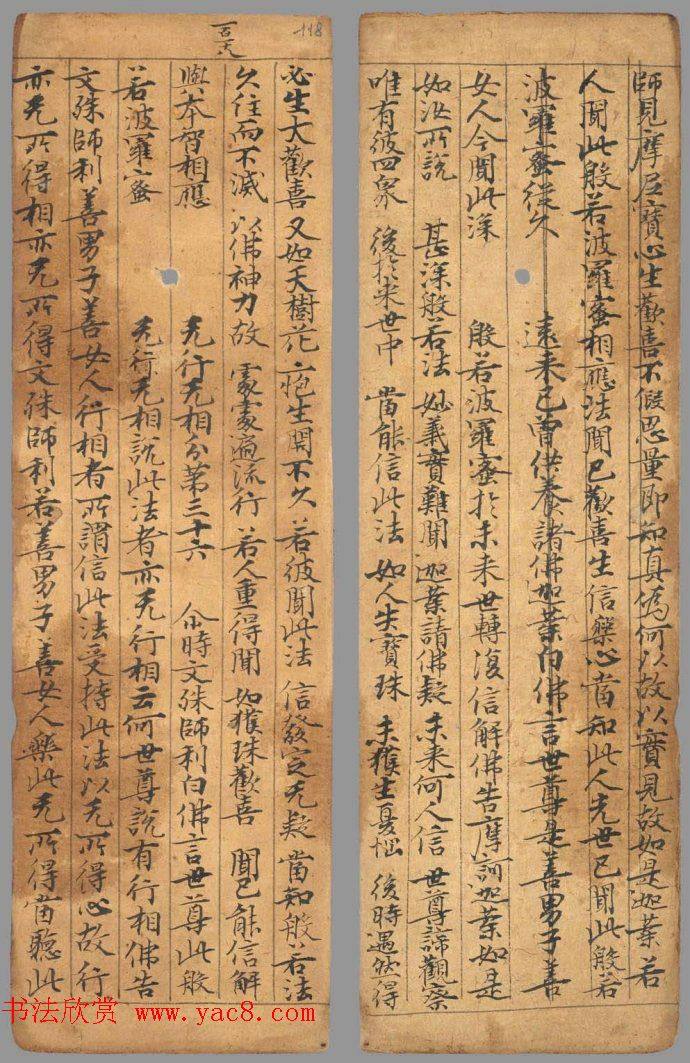 師見摩尼寶心生歡喜不假思量即知真偽何以故以寶見故如是迦葉若
人聞此般若波羅蜜相應法聞已歡喜生信樂心當知此人先世已聞此般若
波羅蜜從久遠来已曾供養諸佛迦葉白佛言世尊是善男子善
女人今聞此深般若波羅蜜於未来世轉復信解佛告摩訶迦葉如是
如汝所說 甚深般若法 妙義實難聞 迦葉請佛疑 未来何人信 世尊諦觀察
唯有彼四衆 後於末世中 當能信此法 如人失寶珠 未獲生憂惱 後時遇然得
118
必生大歡喜 又如天樹花 皰生開不久 若彼聞此法 信發定无疑 當知般若法
久住而不滅 以佛神力故 處處遍流行 若人重得聞 如獲珠歡喜 聞已能信解
與本智相應 无行无相分第三十六 尒時文殊師利白佛言世尊此般
若波羅蜜 无行无相說此法者亦无行相云何世尊說有行相佛告
文殊師利善男子善女人行相者所謂信此法受持此法以无所得心故行
亦无所得相亦无所得文殊師利若善男子善女人樂此无所得當聽此
书法欣赏 www.yac8.com